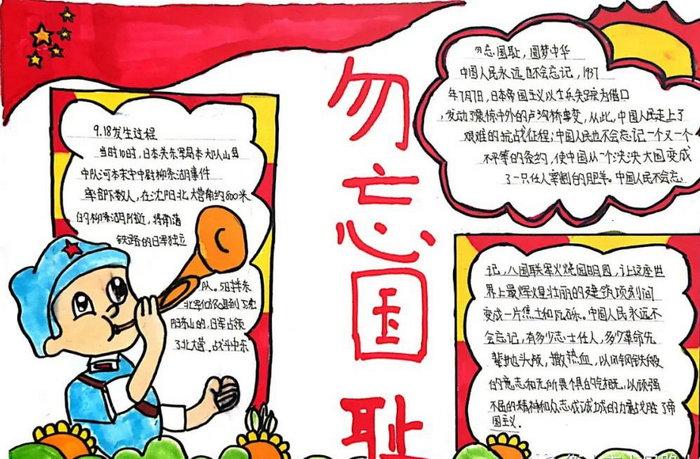 勿忘国耻
9.18发生过程
当时10时,日本关东军岛本大队川岛
中队河本末守中尉柳条湖事件
率部下数人,在沈阳北大营南约800米
的柳条湖附近,将南满
铁路的
队。5日拂东
日军占领
了北大营,战斗中东
勿忘国耻,圆梦中华
中国人民永远也不会忘记,1937
年7月7日,日本帝国主义以士兵失踪为借口
发动了震惊中外的卢沟桥事变,从此,中国人民走上了
艰难的抗战征程;中国人民也不会忘记一个又一个
不平等的条约,使中国从一个泱泱大国变成
了一只任人宰割的肥羊。中国人民不会忘
记,八国联军火烧圆明园,让这座世
界上最辉煌壮丽的建筑顷刻间
变成一片焦土和瓦砾。中国人民永远不
会忘记,有多少志士仁人,多少革命先
辈抛头颅,撒热血,以闪钢铁般
的意志和无所畏惧的气概,以顽强
不屈的精神和众志成城的力量战胜了帝
国主义.